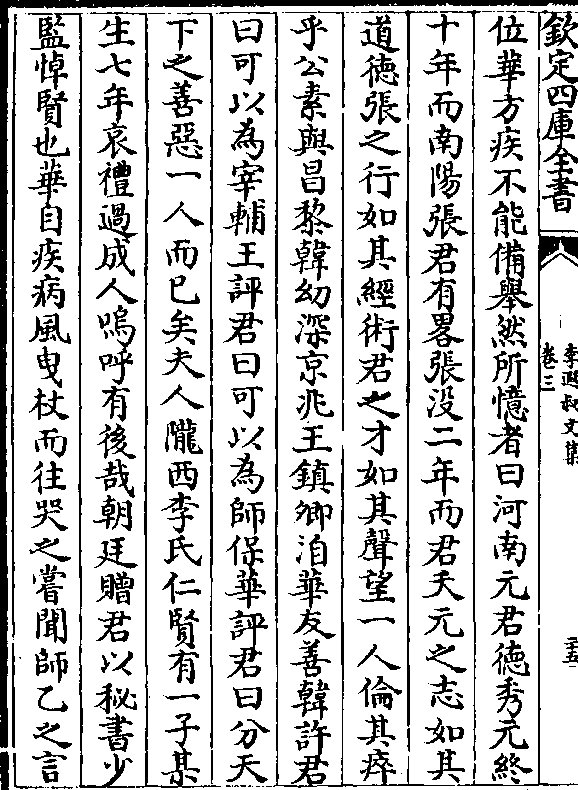 欽定四庫全書
李遐叔文集
卷三
三五
位華方疾不能備舉然所憶者曰河南元君德秀元終
十年而南陽張君有畧張没二年而君夭元之志如其
道德張之行如其經術君之才如其聲望一人倫其瘁
乎公素與昌黎韓幼深京兆王鎮卿洎華友善韓許君
曰可以為宰輔王評君曰可以為師保華評君曰分天
下之善惡一人而已矣夫人隴西李氏仁賢有一子某
生七年哀禮過成人嗚呼有後哉朝廷贈君以秘書少
監悼賢也華自疾病風曳杖而往哭之嘗聞師乙之言